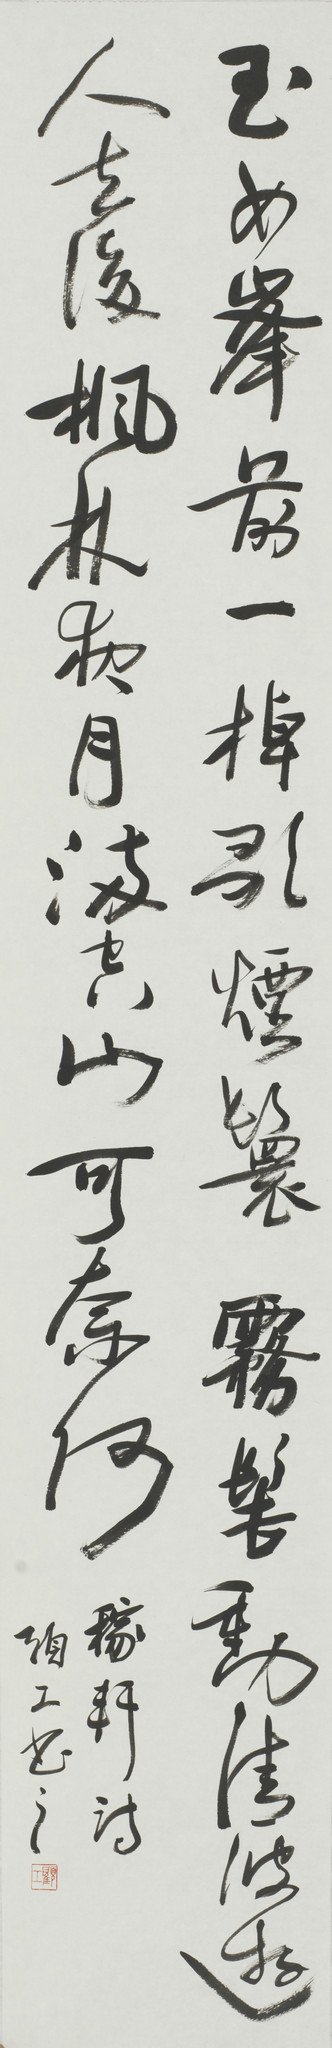 玉女峯前一棹歌煙鬟霧髻動清波遊
人去後楓林夜月滿空山可奈何
稼軒詩
頌工書之